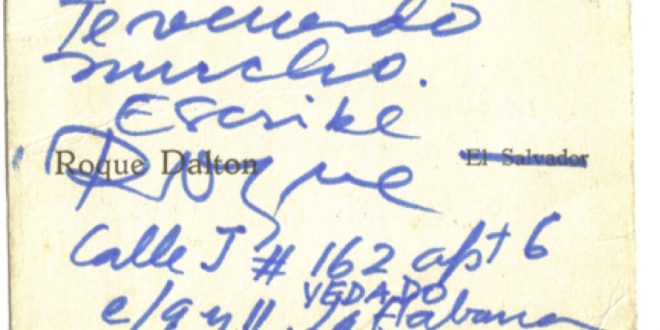 Te recuerdo
mucho.
Escribe
Roque Dalton El Salvador
Roque
Calle J # 162 apt 6
VEDADO
e/9 y 11. La Habana